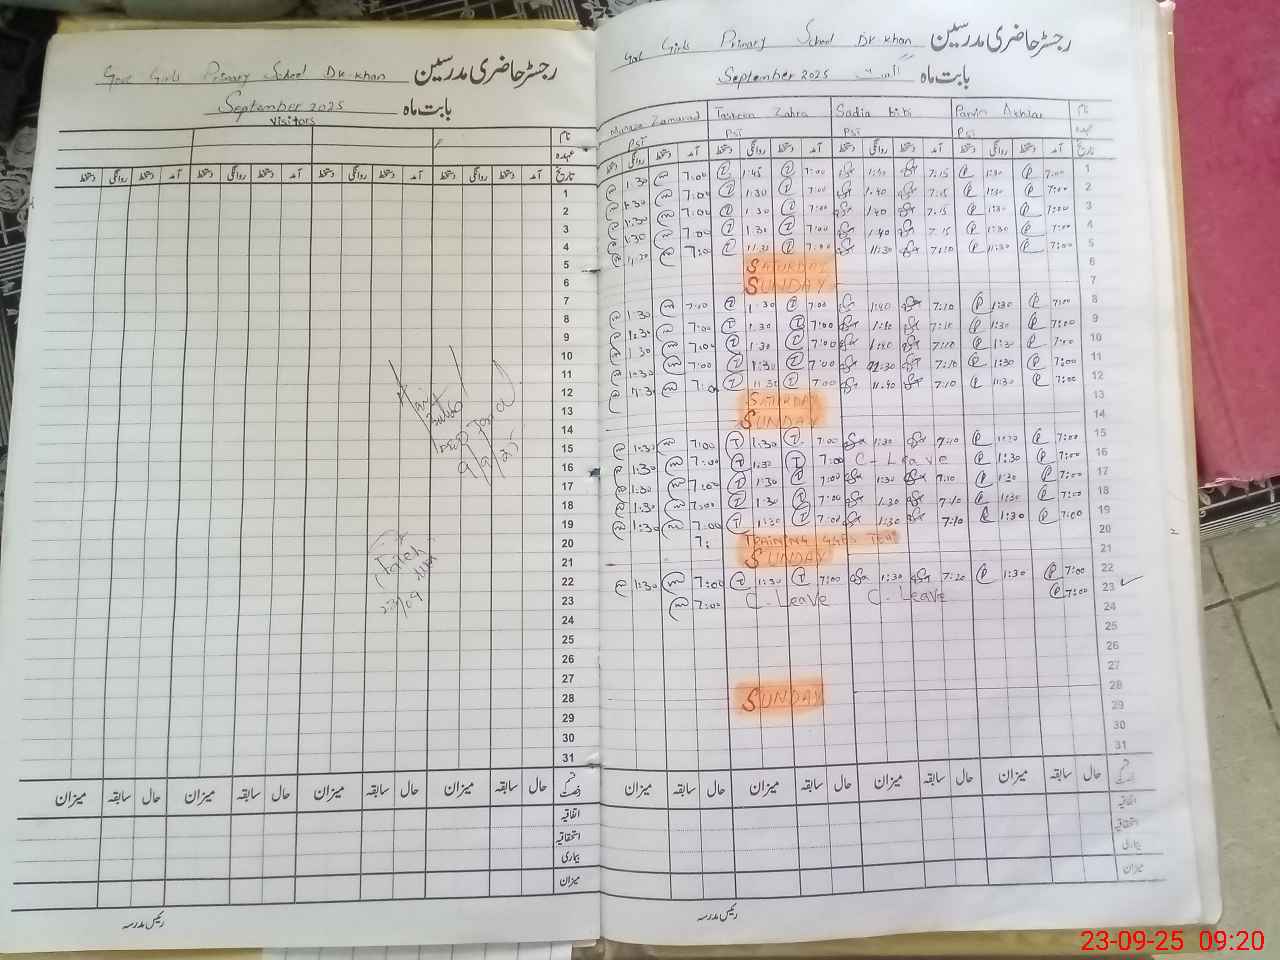 رجسٹر حاضری مدرسین Govt Girls Primary School DK-khan
بابت ماہ September 2025
Visitors
نام
عہدہ
تاریخ آمد دستخط روانگی دستخط آمد دستخط روانگی دستخط آمد دستخط روانگی دستخط آمد دستخط روانگی دستخط
1
2
3
4
5
6
7
8
9
10
11
12
13
14
15
16
17
18
19
20
21
22
23
24
25
26
27
28
29
30
31
9/9/25
23/09
حال سابقہ میزان حال سابقہ میزان حال سابقہ میزان حال سابقہ میزان
اتفاقیہ
استحقاقیہ
بیماری
میزان
رئیس مدرسہ
رجسٹر حاضری مدرسین Govt Girls Primary School DK-khan
بابت ماہ September 2025
نام Parvin Akhtar Sadia bibi Zahra Zamurad
عہدہ PST PST PST PST
تاریخ آمد دستخط روانگی دستخط آمد دستخط روانگی دستخط آمد دستخط روانگی دستخط آمد دستخط روانگی دستخط
1 7:00 1:30 7:15 1:40 7:00 1:45 7:00 1:30
2 7:00 1:30 7:15 1:40 7:00 1:30 7:00 1:30
3 7:00 1:30 7:15 1:40 7:00 1:30 7:00 1:30
4 7:00 1:30 7:15 1:40 7:00 1:30 7:00 1:30
5 7:00 11:30 7:10 11:30 7:00 11:30 7:00 11:30
6 SATURDAY
7 SUNDAY
8 7:00 1:30 7:10 1:40 7:00 1:30 7:00 1:30
9 7:00 1:30 7:10 1:40 7:00 1:30 7:00 1:30
10 7:00 1:30 7:10 1:40 7:00 1:30 7:00 1:30
11 7:00 1:30 7:10 7:00 1:30 7:00 1:30
12 7:00 11:30 7:10 11:40 7:00 11:30 11:30
13 SATURDAY
14 SUNDAY
15 7:00 1:30 7:10 1:30 7:00 1:30 7:00 1:30
16 7:00 1:30 C-Leave 7:00 1:30 7:00 1:30
17 7:00 1:30 7:10 1:30 7:00 1:30 7:00 1:30
18 7:00 1:30 7:10 1:30 7:00 1:30 7:00 1:30
19 7:00 1:30 7:10 1:30 7:00 1:30 7:00 1:30
20 TRAINING 7:
21 SUNDAY
22 7:00 1:30 7:20 1:30 7:00 1:30 7:00 1:30
23 7:00 C-Leave C-Leave 7:00
24
25
26
27
28 SUNDAY
29
30
31
حال سابقہ میزان حال سابقہ میزان حال سابقہ میزان
اتفاقیہ
استحقاقیہ
بیماری
میزان
رئیس مدرسہ
23-09-25 09:20